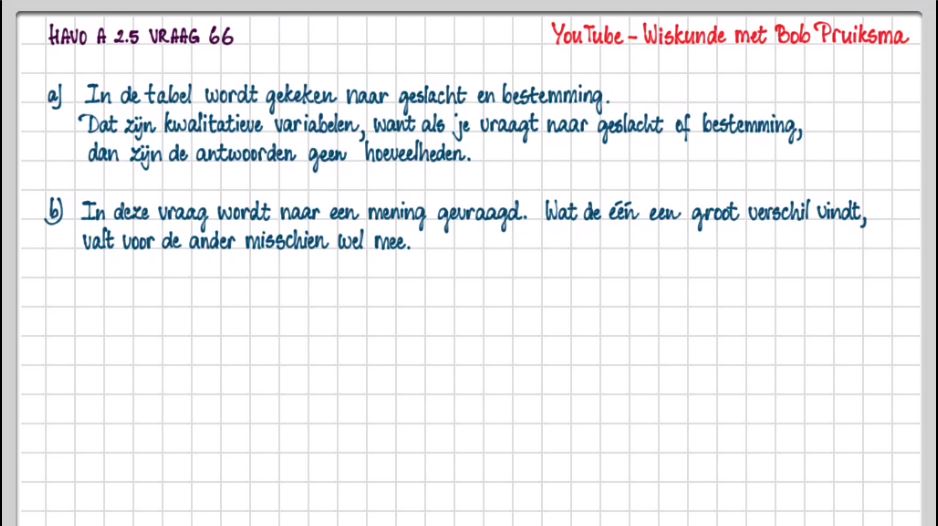 HAVO A 2.5 VRAAG 66
YouTube - Wiskunde met Bob Pruiksma
a) In de tabel wordt gekeken naar geslacht en bestemming.
Dat zijn kwalitatieve variabelen, want als je vraagt naar geslacht of bestemming,
dan zijn de antwoorden geen hoeveelheden.
b) In deze vraag wordt naar een mening gevraagd. Wat de één een groot verschil vindt,
valt voor de ander misschien wel mee.